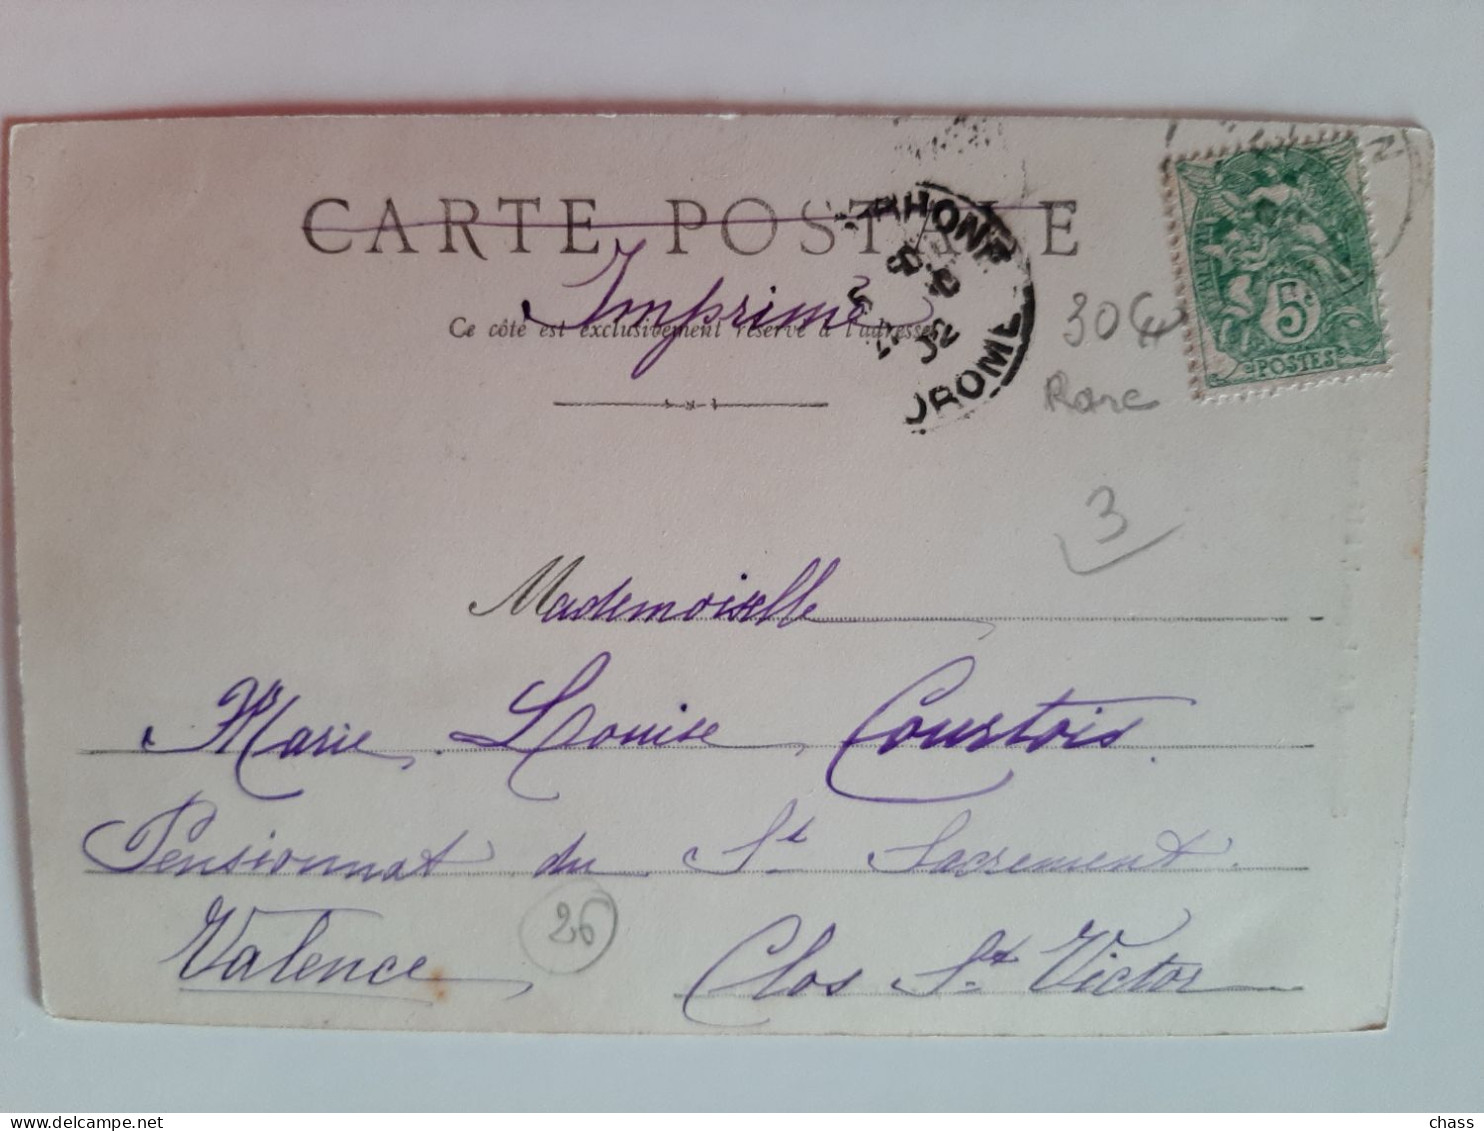 CARTE POSTALE
Imprimé
Ce côté est exclusivement réservé à l'adresse
RHONE
DROME
5c
POSTES
30€
Rare
3
Mademoiselle
Marie Louise Courtois.
Pensionnat du St Sacrement.
Valence
26
Clos St Victor
chass